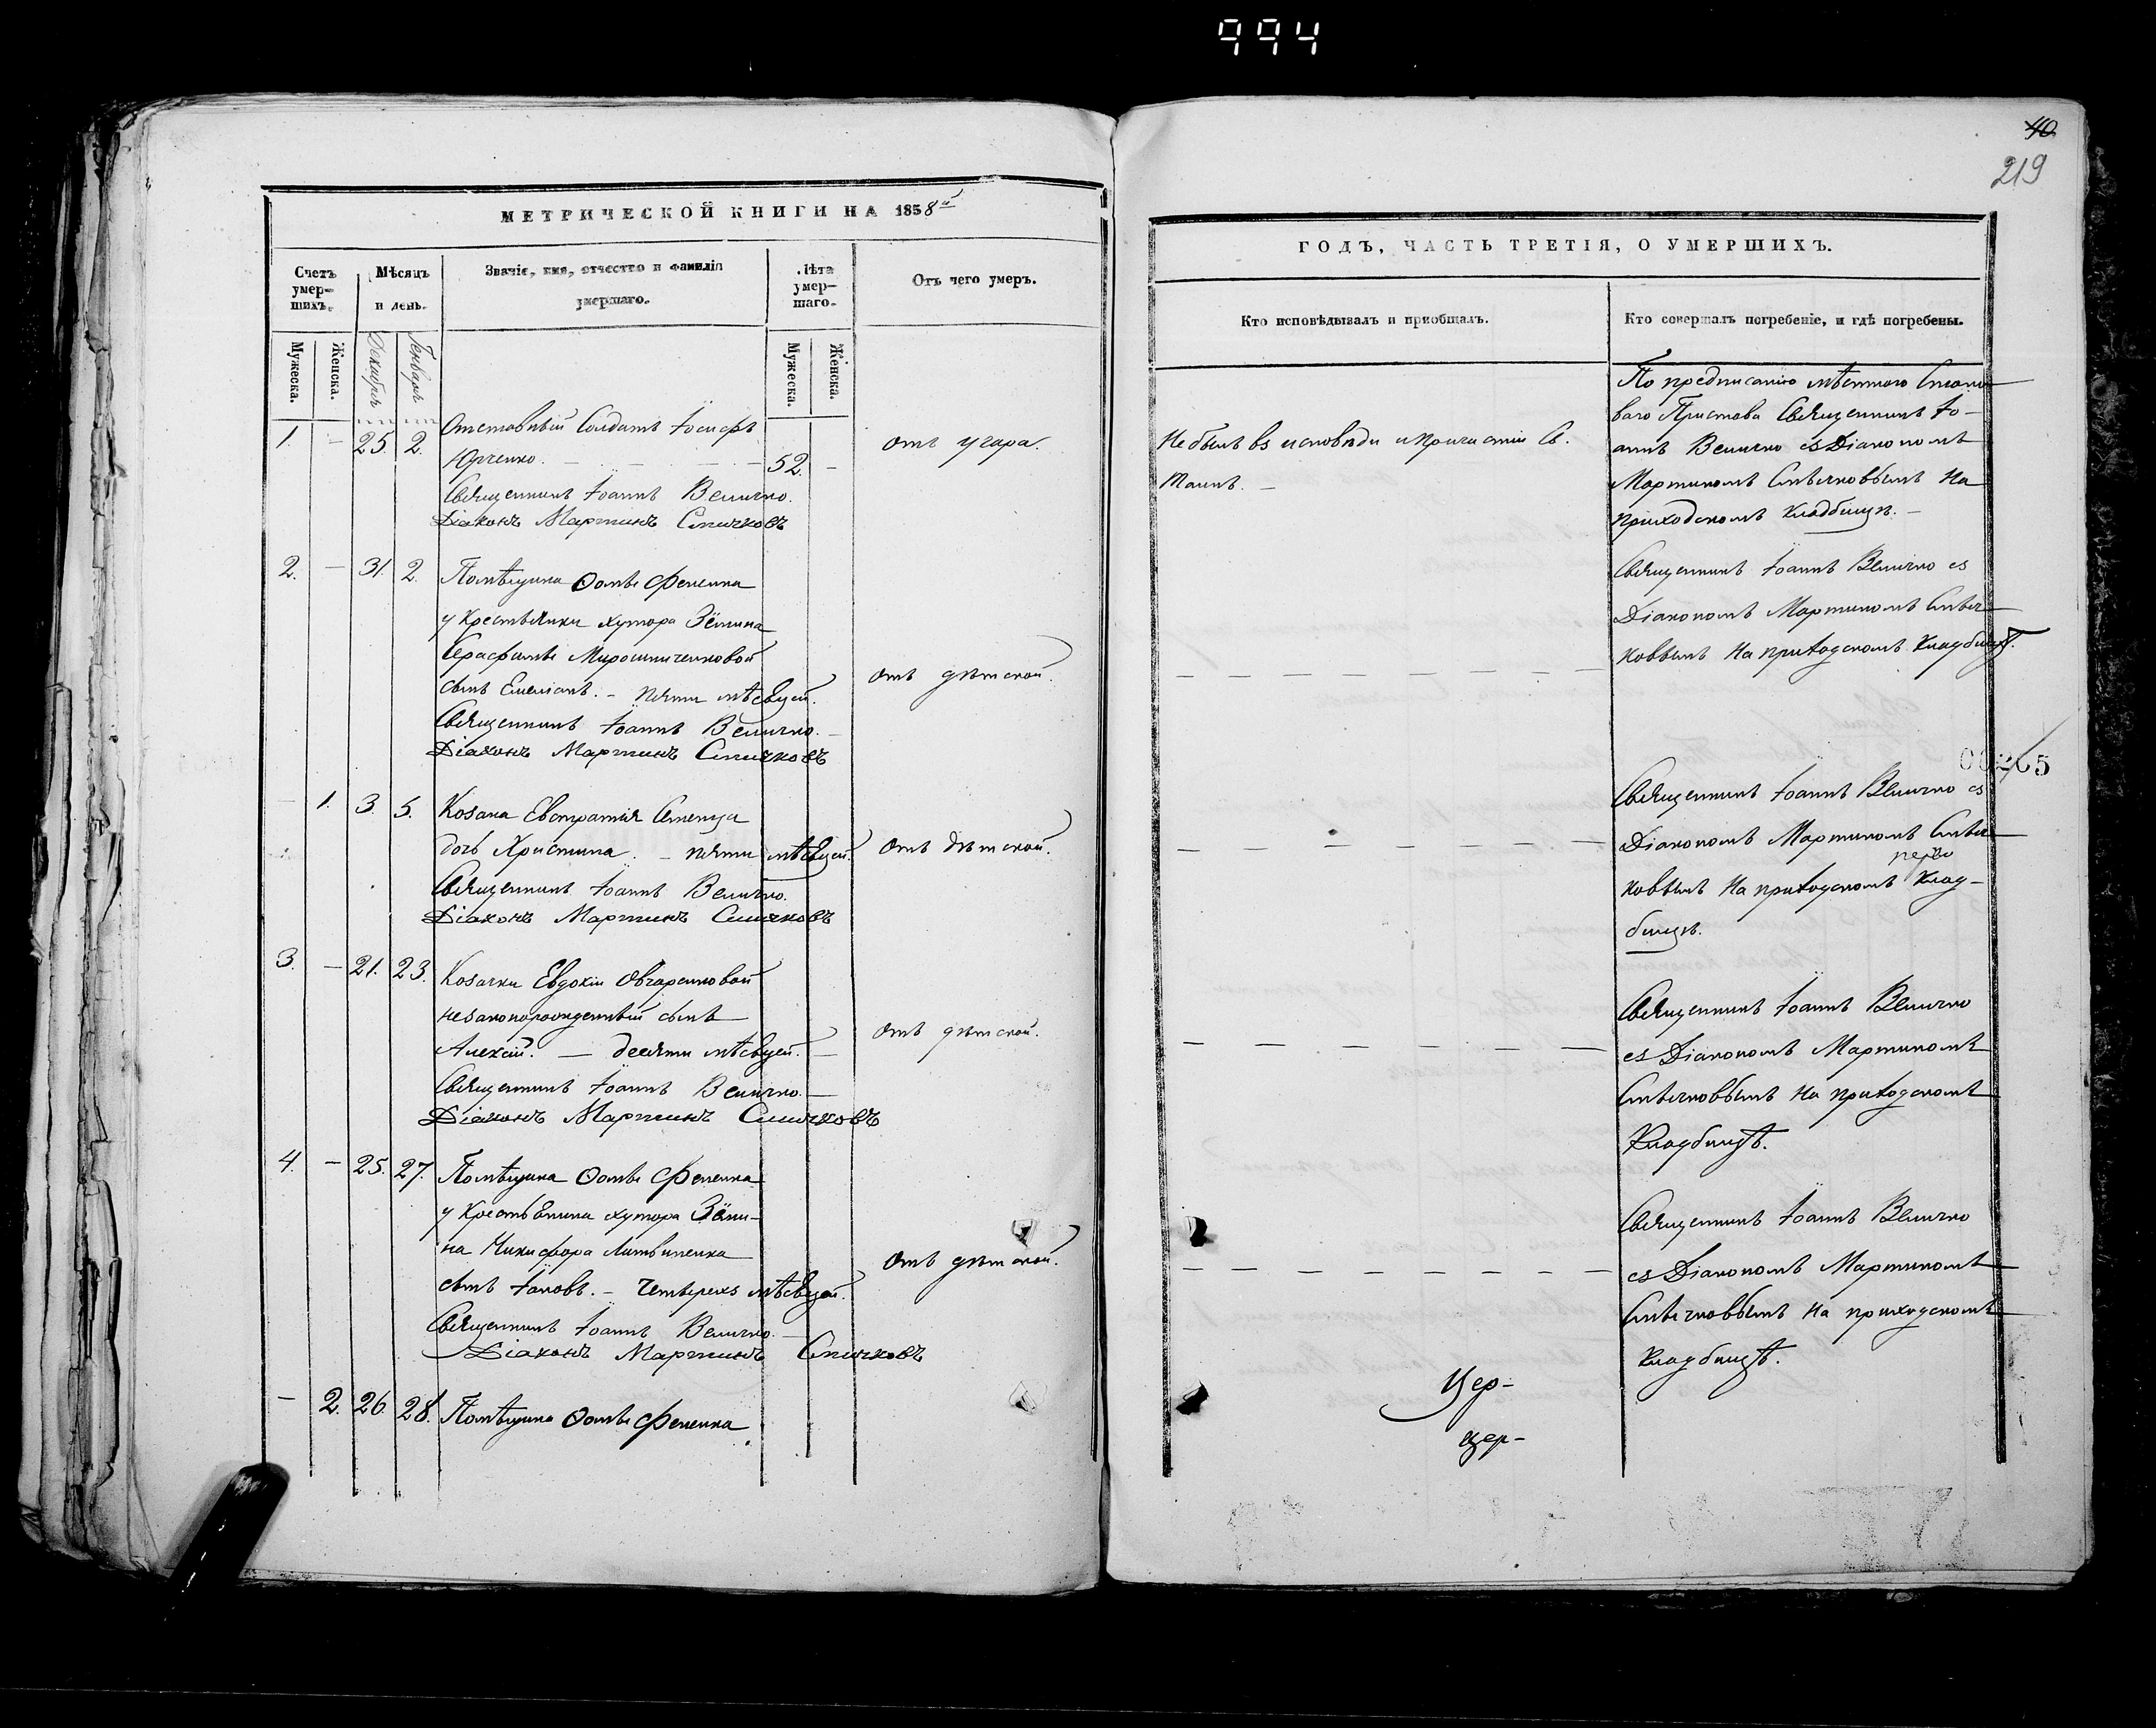 994
40
219
МЕТРИЧЕСКОЙ КНИГИ НА 1858й
Счетъ умер-шихъ.
Мѣсяцъ и день.
Званіе, имя, отчество и фамилія умершаго.
Лѣта умер-шаго.
Отъ чего умеръ.
Мужеска.
Женска.
Декабря
Генваря
Мужеска.
Женска.
1. - 25. 2. Отставный Солдатъ Іосифъ
Юрченко. 52. - отъ угара.
Священникъ Іоаннъ Величко.
Діаконъ Мартинъ Спичковъ
2. - 31. 2. Помѣщика Фомы Фененка
у крестьянки хутора Зёмина
Серафимы Мирошниченковой
сынъ Емеліанъ. - пяти мѣсяцей. отъ дѣтской.
Священникъ Іоаннъ Величко.
Діаконъ Мартинъ Спичковъ
- 1. 3. 5. Козака Евстратія
дочь Христина. - пяти мѣсяцей. Отъ дѣтской.
Священникъ Іоаннъ Величко.
Діаконъ Мартинъ Спичковъ
3. - 21. 23. Козачки Евдокіи Овчаренковой
незаконорожденный сынъ
Алексій. - десяти мѣсяцей. Отъ дѣтской.
Священникъ Іоаннъ Величко.
Діаконъ Мартинъ Спичковъ
4. - 25. 27. Помѣщика Фомы Фененка
у крестьянина хутора Зёми-
на Никифора Литвиненка
сынъ Іаковъ. - Четырехъ мѣсяцей. Отъ дѣтской.
Священникъ Іоаннъ Величко.
Діаконъ Мартинъ Спичковъ
- 2. 26 28. Помѣщика Фомы Фененка
ГОДЪ, ЧАСТЬ ТРЕТІЯ, О УМЕРШИХЪ.
Кто исповѣдывалъ и пріобщалъ.
Кто совершалъ погребеніе, и гдѣ погребены.
Не былъ въ исповѣди и причастіи Св.
Таинъ. -
По предписанію мѣстнаго Стано-
ваго Пристава Священникъ Іо-
аннъ Величко съ Діакономъ
Мартиномъ Спичковымъ на
приходскомъ кладбищѣ. -
Священникъ Іоаннъ Величко съ
Діакономъ Мартиномъ Спич-
ковымъ на приходскомъ кладбищѣ.
00265
Священникъ Іоаннъ Величко съ
Діакономъ Мартиномъ Спич-
ковымъ на приходскомъ клад-
бищѣ.
Священникъ Іоаннъ Величко
съ Діакономъ Мартиномъ
Спичковымъ на приходскомъ
кладбищѣ.
Священникъ Іоаннъ Величко
съ Діакономъ Мартиномъ
Спичковымъ на приходскомъ
кладбищѣ.
Цер-
цер-